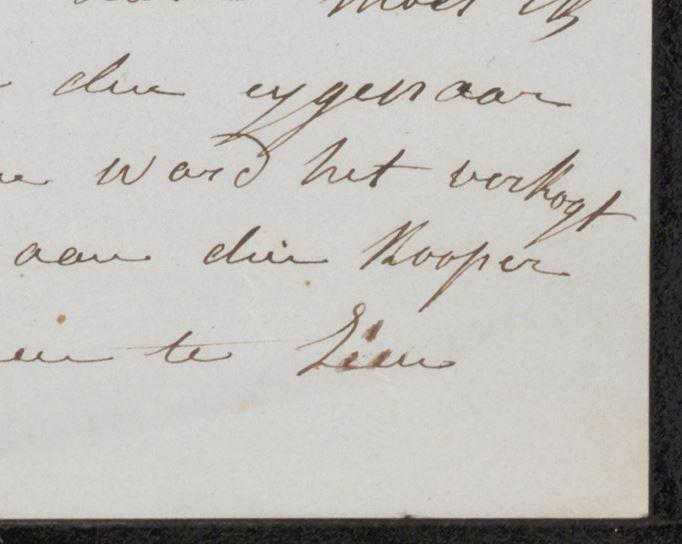 moet ik
den eygenaar
word het verkogt
aan den Kooper
te Zien